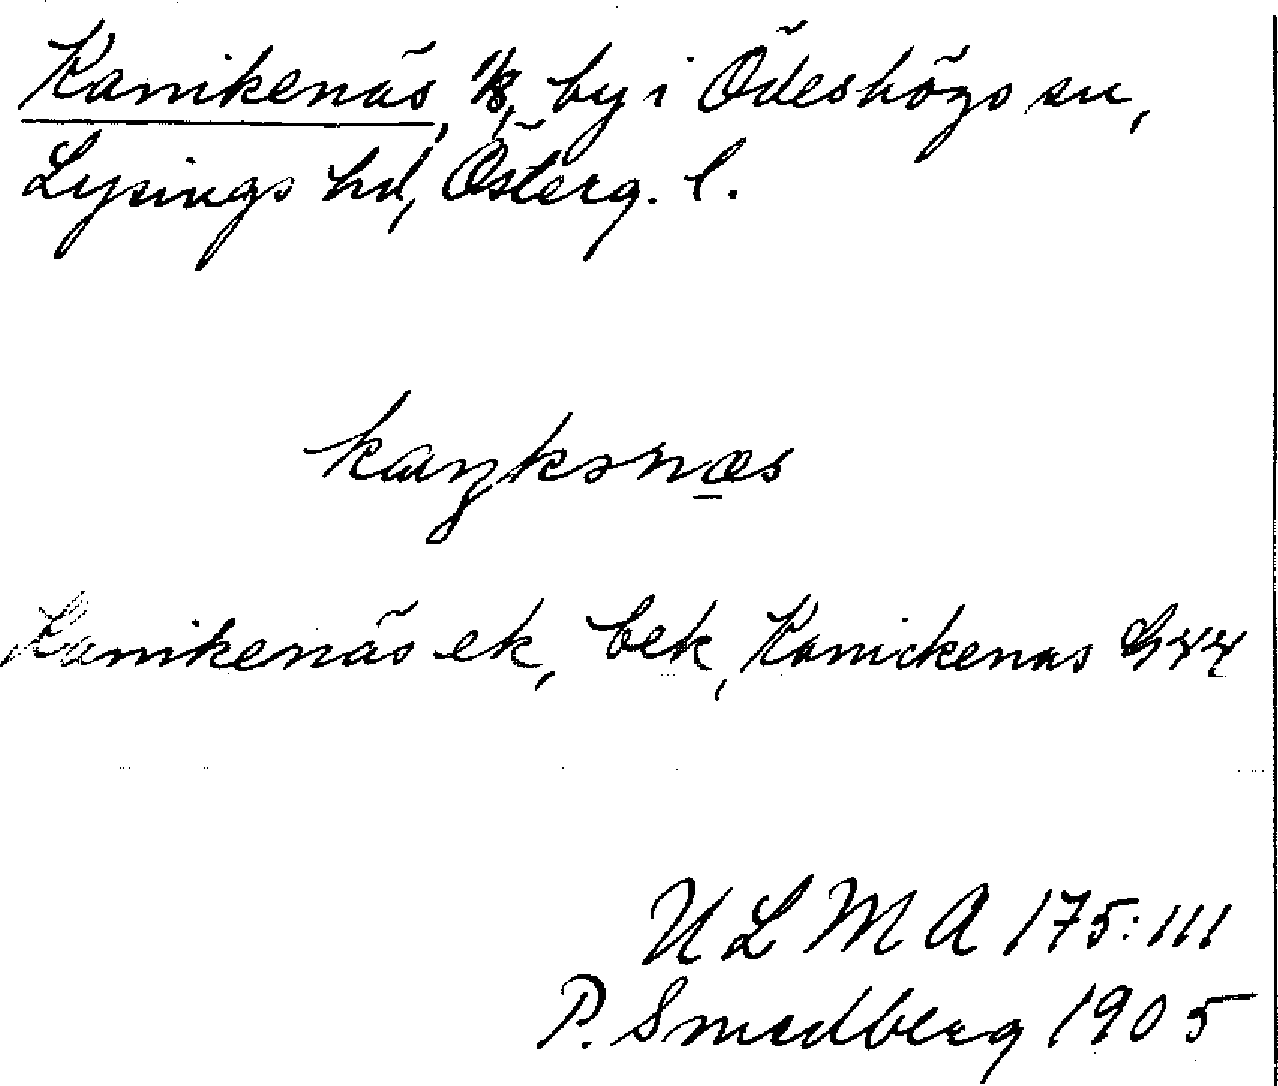 Kanikenäs, 1/8, by i Ödeshögs sn,
Lysings hd, Österg. l.
Kanikenäs ek, bek, Kanickenas
U L M A 175:111
P. Smedberg 1905